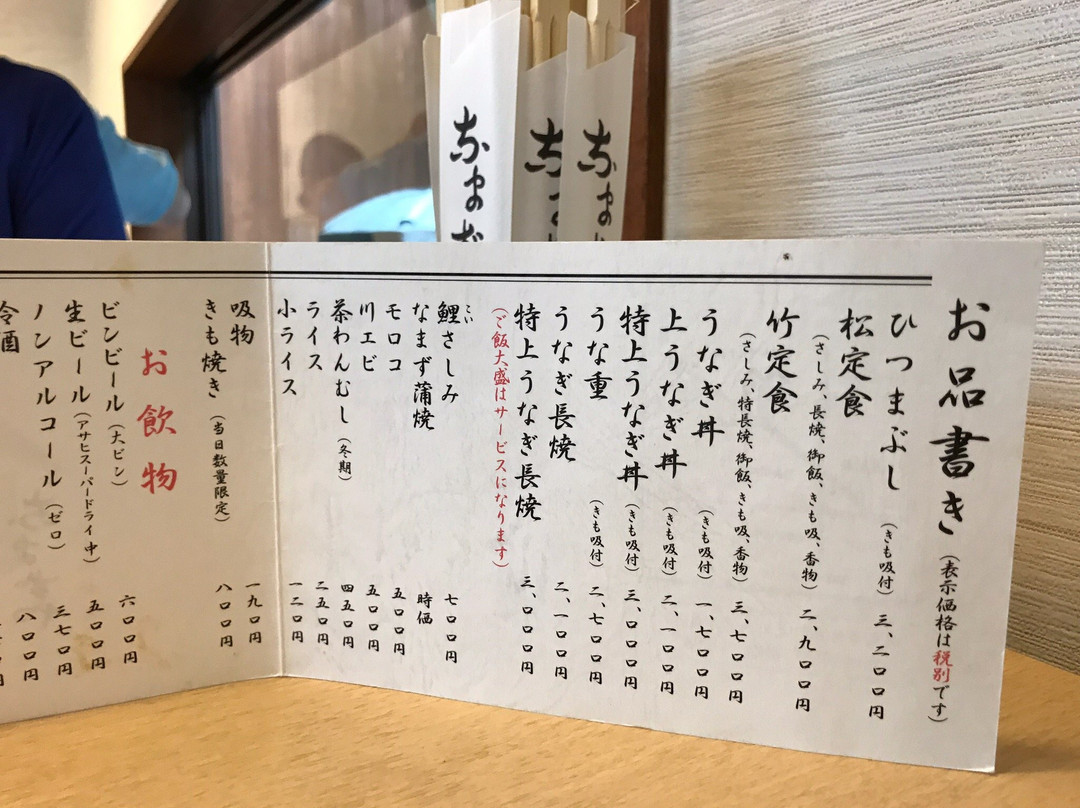 お品書き(表示価格は税別です)
ひつまぶし(きも吸付)三、二〇〇円
松定食
(さしみ、長焼、御飯、きも吸、香物)二、九〇〇円
竹定食
(さしみ、特長焼、御飯、きも吸、香物)三、七〇〇円
うなぎ丼(きも吸付)一、七〇〇円
上うなぎ丼(きも吸付)二、一〇〇円
特上うなぎ丼(きも吸付)三、〇〇〇円
うな重(きも吸付)二、七〇〇円
うなぎ長焼 二、一〇〇円
特上うなぎ長焼 三、〇〇〇円
(ご飯大盛はサービスになります)
こい
鯉さしみ 七〇〇円
なまず蒲焼 時価
モロコ 五〇〇円
川エビ 五〇〇円
茶わんむし(冬期)四五〇円
ライス 二五〇円
小ライス 一二〇円
吸物 一九〇円
きも焼き(当日数量限定)八〇〇円
お飲物
ビンビール(大ビン)六〇〇円
生ビール(アサヒスーパードライ中)五〇〇円
ノンアルコール(ゼロ)三七〇円
冷酒 八〇〇円
なまず
なま
なま